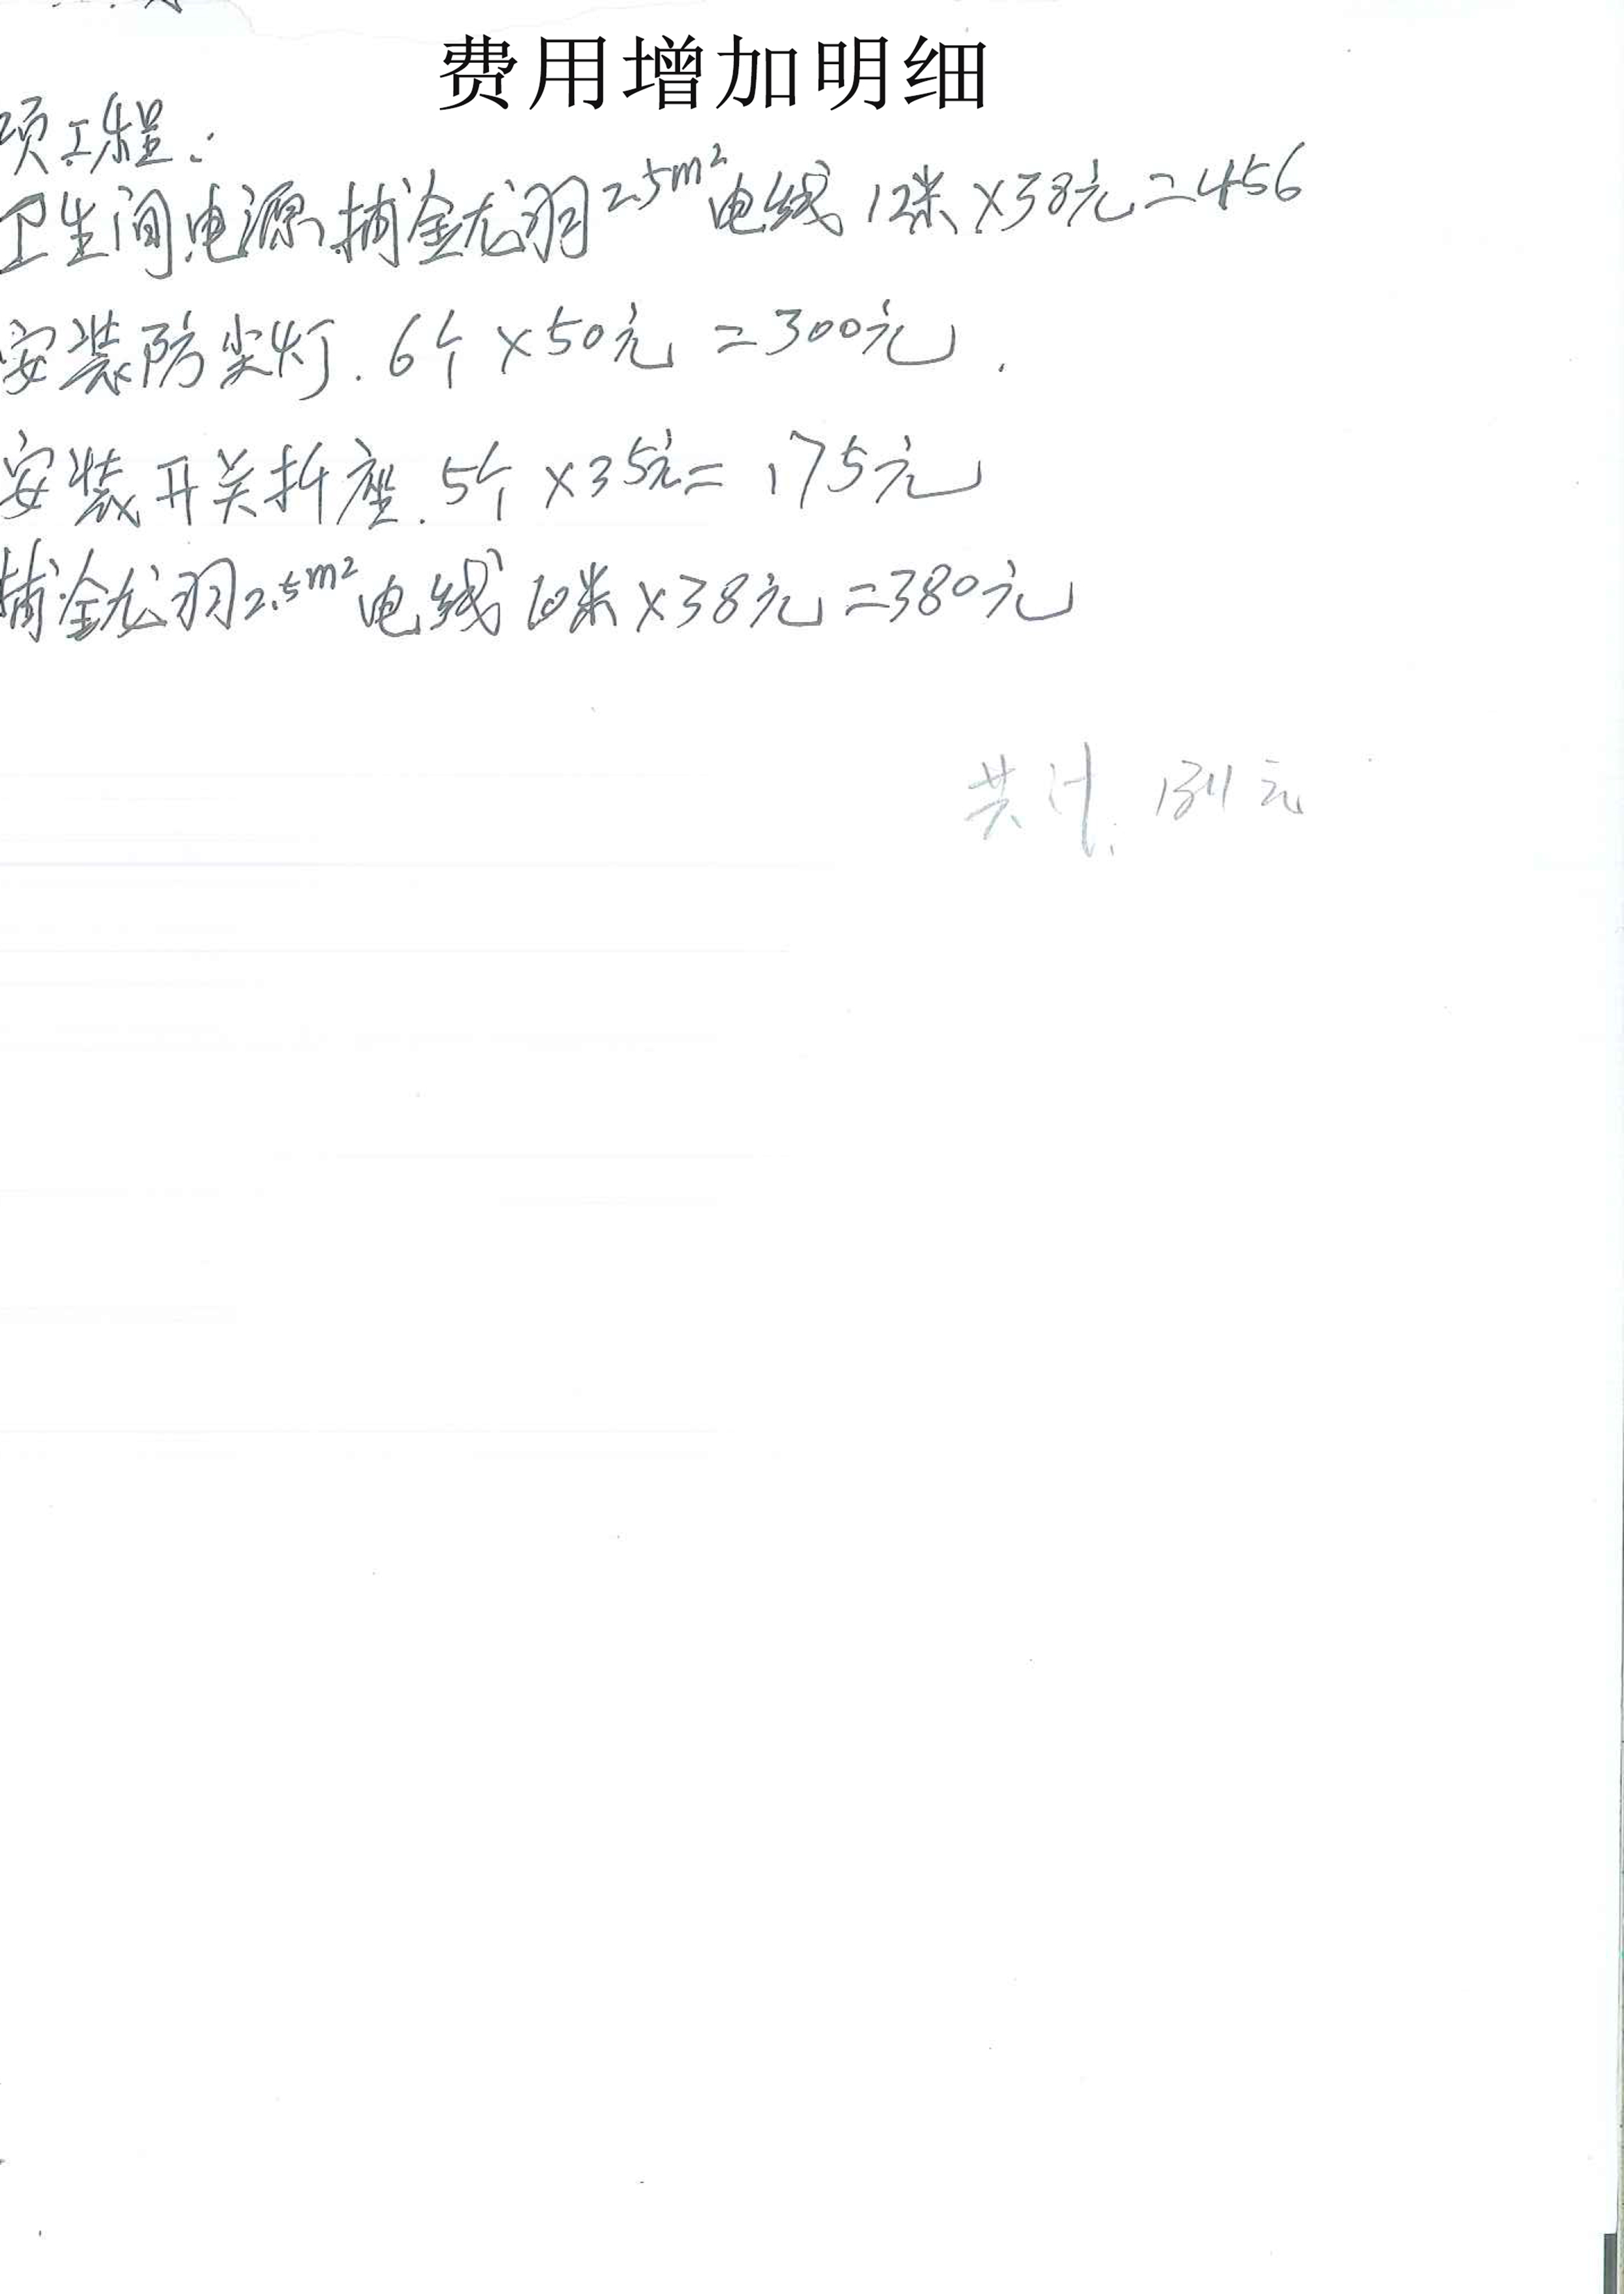 费用增加明细
项工程:
卫生间电源.捕金龙羽2.5m²电线12米×38元=456
安装防尘灯.6个×50元=300元.
安装开关插座.5个×35元=175元
捕金龙羽2.5m²电线10米×38元=380元
共计:1311元